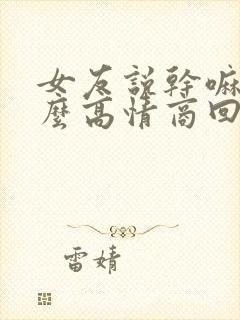 女友說幹嘛
麼高情商回
雷婧